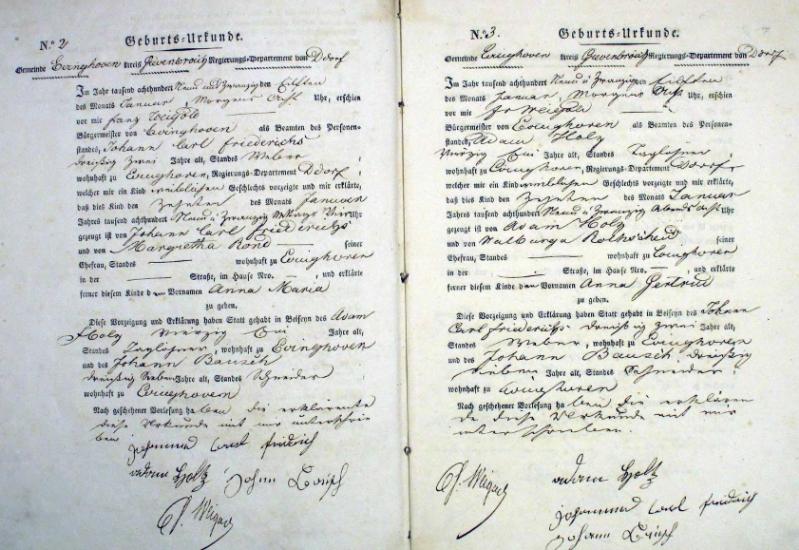 N.º 2
Geburts-Urkunde.
Gemeinde Evinghoven Kreis Grevenbroich Regierungs-Departement von Ddorf
Im Jahr tausend achthundert Neun und Zwanzig den Eilften
des Monats Januar, Morgens Acht Uhr, erschien
vor mir Franz
Bürgermeister von Evinghoven als Beamten des Personen-
standes, Johann Carl Friederichs
dreißig zwei Jahre alt, Standes Weber
wohnhaft zu Evinghoven, Regierungs-Departement Ddorf,
welcher mir ein Kind weiblichen Geschlechts vorzeigte und mir erklärte,
daß dies Kind den Zehnten des Monats Januar
Jahres tausend achthundert Neun u Zwanzig Mittags Vier Uhr
gezeugt ist von Johann Carl Friederichs
und von Margretha Rond seiner
Ehefrau, Standes wohnhaft zu Evinghoven
in der Straße, im Hause Nro. und erklärte
ferner diesem Kinde den Vornamen Anna Maria
zu geben.
Diese Vorzeigung und Erklärung haben Statt gehabt in Beiseyn des Adam
Holz vierzig Jahre alt,
Standes Taglöhner, wohnhaft zu Evinghoven
und des Johann Bausch
dreußig sieben Jahre alt, Standes Schneider
wohnhaft zu Evinghoven
Nach geschehener Vorlesung haben die erklärente
diese Urkunde mit mir unterschrie
ben
johannes carl fridrich
adam holz johann Bausch
N.º 3.
Geburts-Urkunde.
Gemeinde Evinghoven Kreis Grevenbroich Regierungs-Departement von Ddorf
Im Jahr tausend achthundert Neun u Zwanzig den Eilften
des Monats Januar, Morgens Acht Uhr, erschien
vor mir
Bürgermeister von Evinghoven als Beamten des Personen-
standes, Adam Holz
vierzig Jahre alt, Standes Taglöhner
wohnhaft zu Evinghoven, Regierungs-Departement Ddorf,
welcher mir ein Kind weiblichen Geschlechts vorzeigte und mir erklärte,
daß dies Kind den Zehnten des Monats Januar
Jahres tausend achthundert Neun u Zwanzig Abends Acht Uhr
gezeugt ist von Adam Holz
und von Walburga seiner
Ehefrau, Standes wohnhaft zu Evinghoven
in der Straße, im Hause Nro. und erklärte
ferner diesem Kinde den Vornamen Anna Gertrud
zu geben.
Diese Vorzeigung und Erklärung haben Statt gehabt in Beiseyn des Johann
Carl Friederichs dreußig zwei Jahre alt,
Standes Weber, wohnhaft zu Evinghoven
und des Johann Bausch dreußig
sieben Jahre alt, Standes Schneider
wohnhaft zu Evinghoven
Nach geschehener Vorlesung haben die erklären
de diese Urkunde mit mir
unterschrieben.
adam holz
johannes carl fridrich
johann Bausch